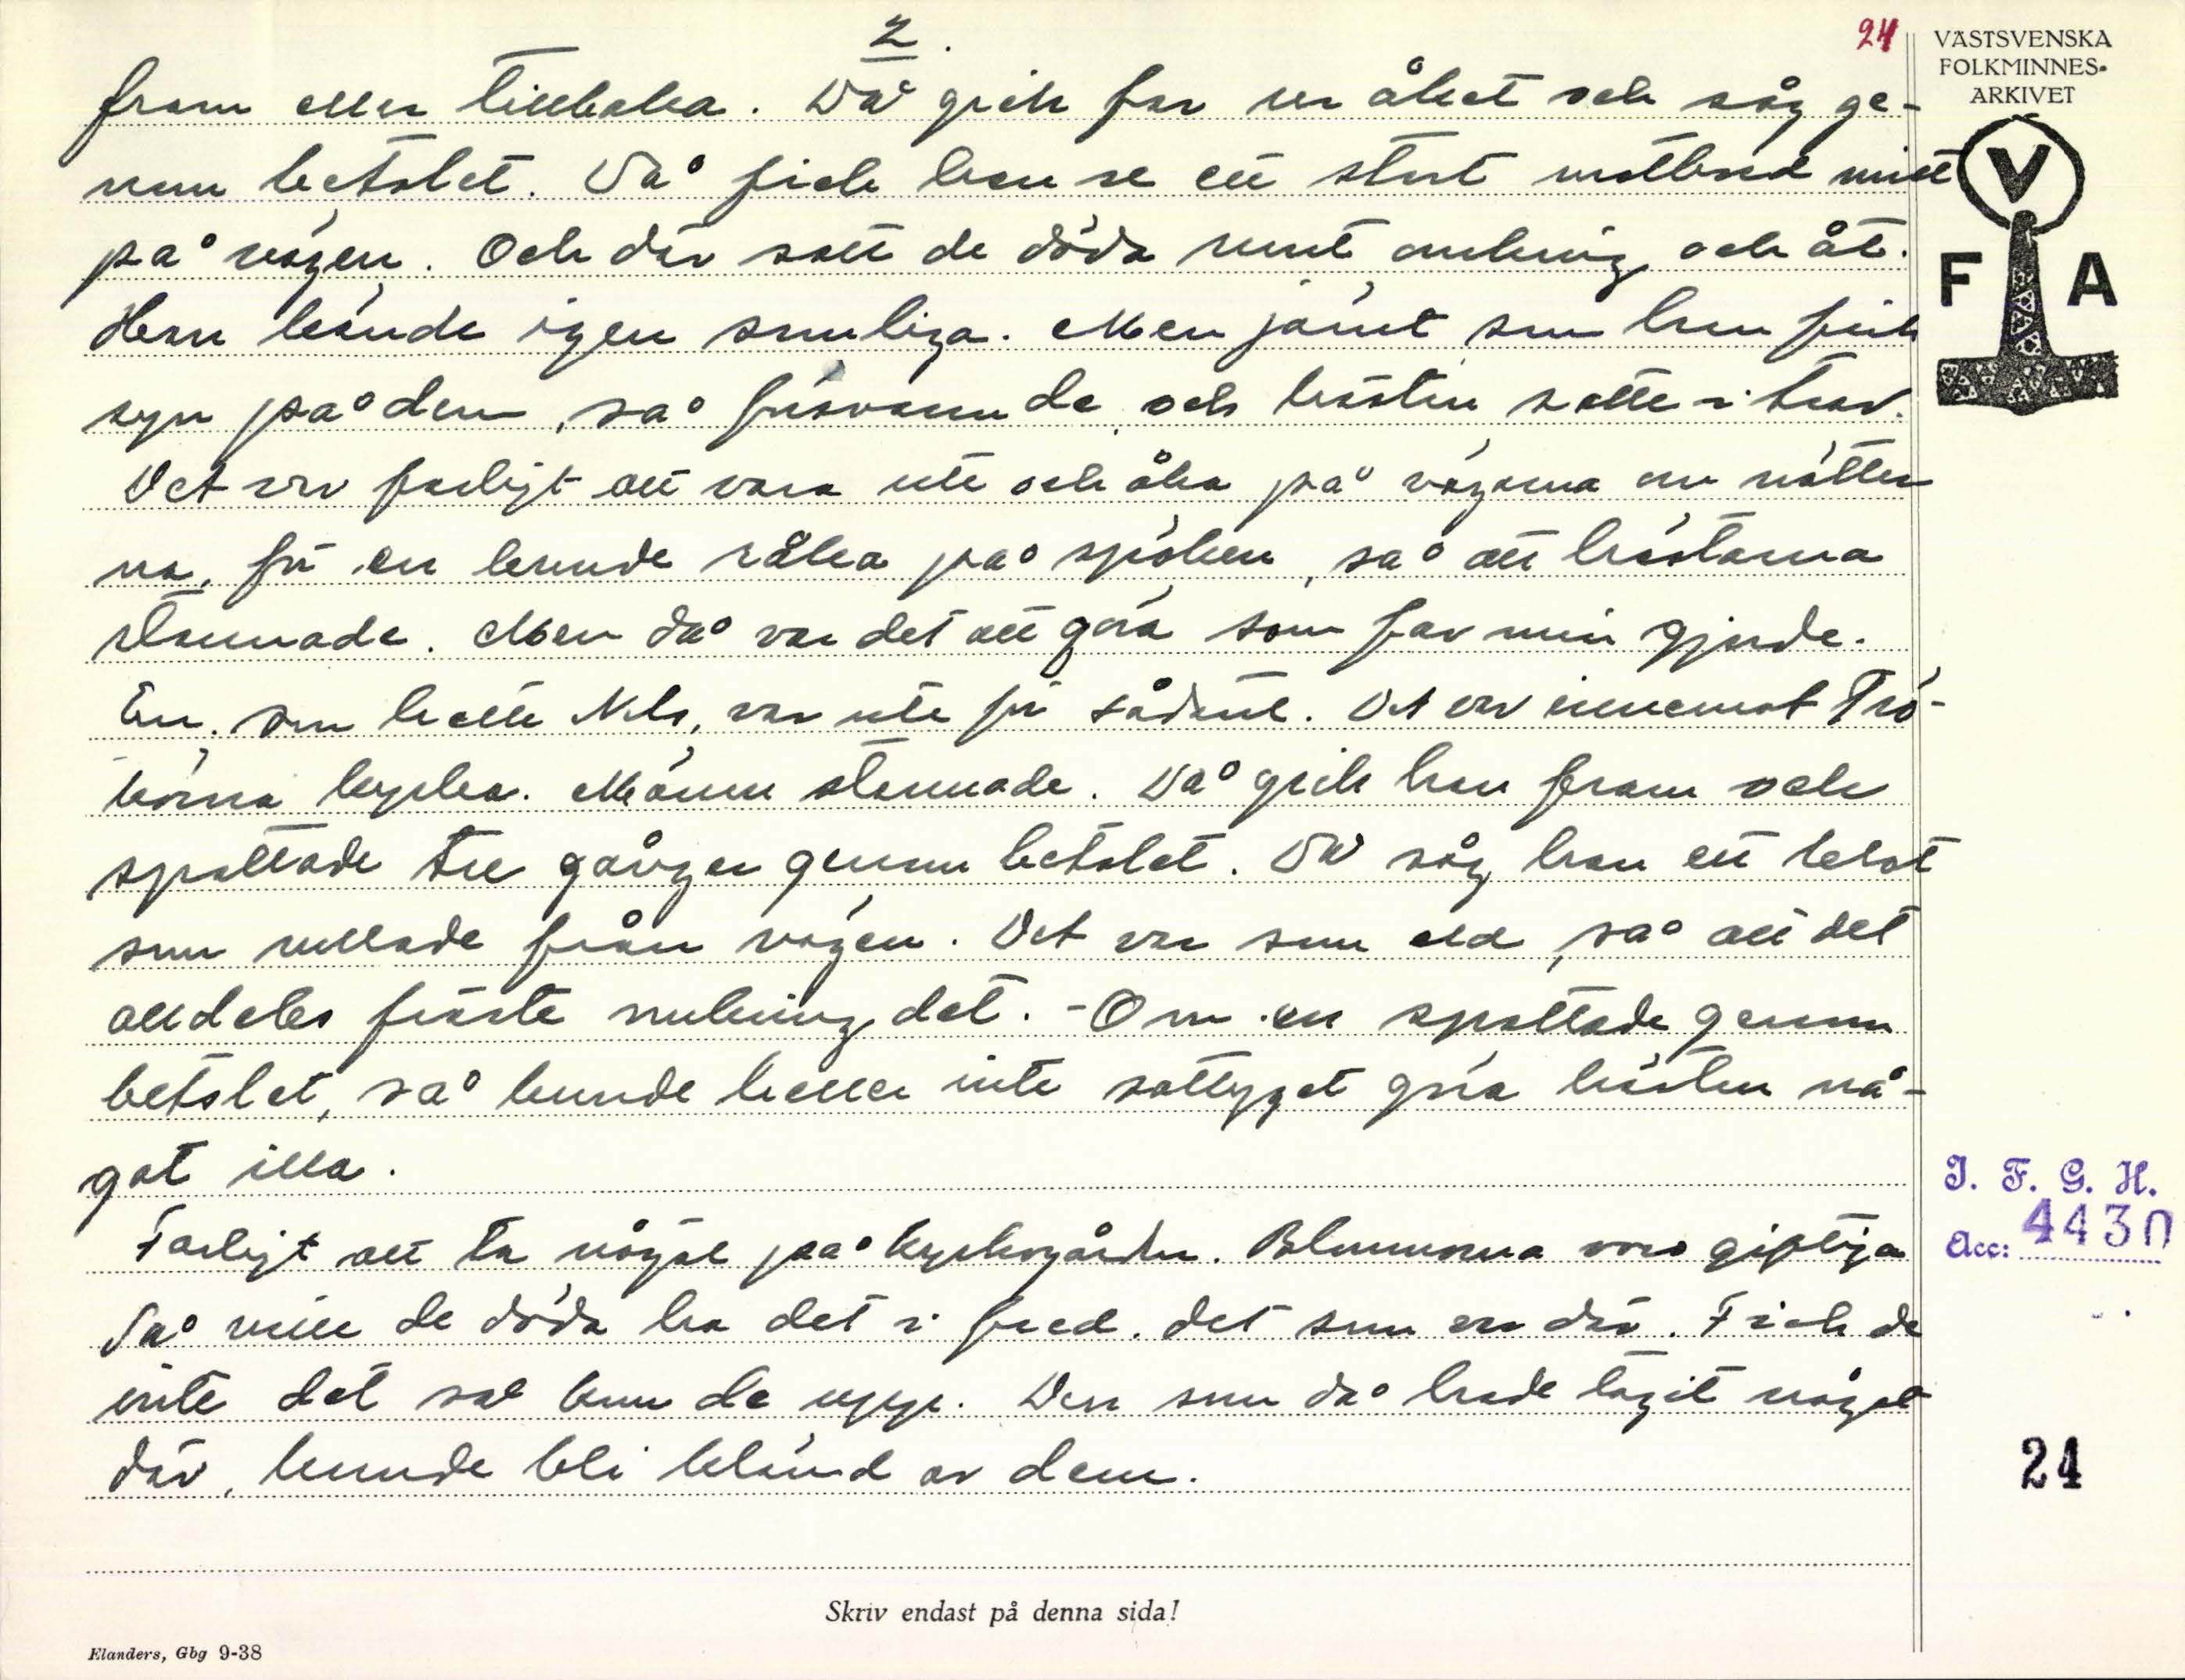 2.
24
VÄSTSVENSKA
FOLKMINNES-
ARKIVET
V
F A
fram eller tillbaka. Då gick far ur åket och såg ge-
nom betslet. Då fick han se ett stort matbord mitt
på vägen. Och där satt de döda runt omkring och åt.
Han kände igen somliga. Men jämt som han fick
syn på dem, så försvann de och hästen satte i trav.
Det var farligt att vara ute och åka på vägarna om nätter
na, för en kunde råka på spöken, så att hästarna
stannade. Men då var det att göra som far min gjorde.
En, som hette Nils, var ute för sådant. Det var innemot Trö-
körna kyrka. Märren stannade. Då gick han fram och
spottade tre gånger genom betslet. Då såg han ett klot
som rullade från vägen. Det var som eld, så att det
alldeles fräste omkring det. - Om en spottade genom
betslet, så kunde heller inte sattyget göra hästen nå-
got illa.
Farligt att ta något på kyrkogården. Blommorna voro giftiga
Så ville de döda ha det i fred, det som var där. Fick de
inte det så kom de upp. Den som då hade tagit något
där, kunde bli klämd av dem.
I. F. G. H.
Acc: 4430
24
Skriv endast på denna sida!
Elanders, Gbg 9-38